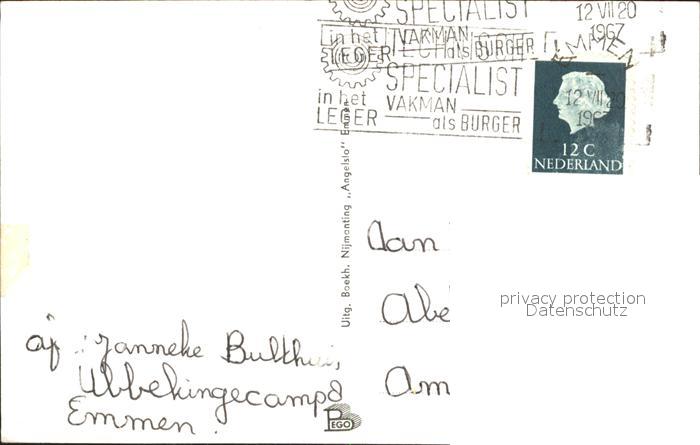 SPECIALIST
12 VII 20
1967
in het VAKMAN
LEGER als BURGER
EMMEN
SPECIALIST
VAKMAN
in het
LEGER als BURGER
12 VII 20
196
12 C
NEDERLAND
Uitg. Boekh. Nijmanting „Angelslo" Emmen
Aan
Abe
Am
privacy protection
Datenschutz
af. Janneke Bulthuis
Ubbekingecamp 8
Emmen.
EGO